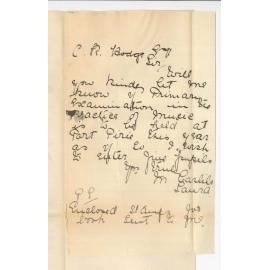 C. R. Hodge Esq
Sir, Will
you kindly let me
know if Primary
Examination in the
Practice of Music
is to be held at
Port Pirie this year
as if so I wish
to enter two pupils
Yrs truly
M Carlile
Laura
Enclosed Stamp for
book sent to me